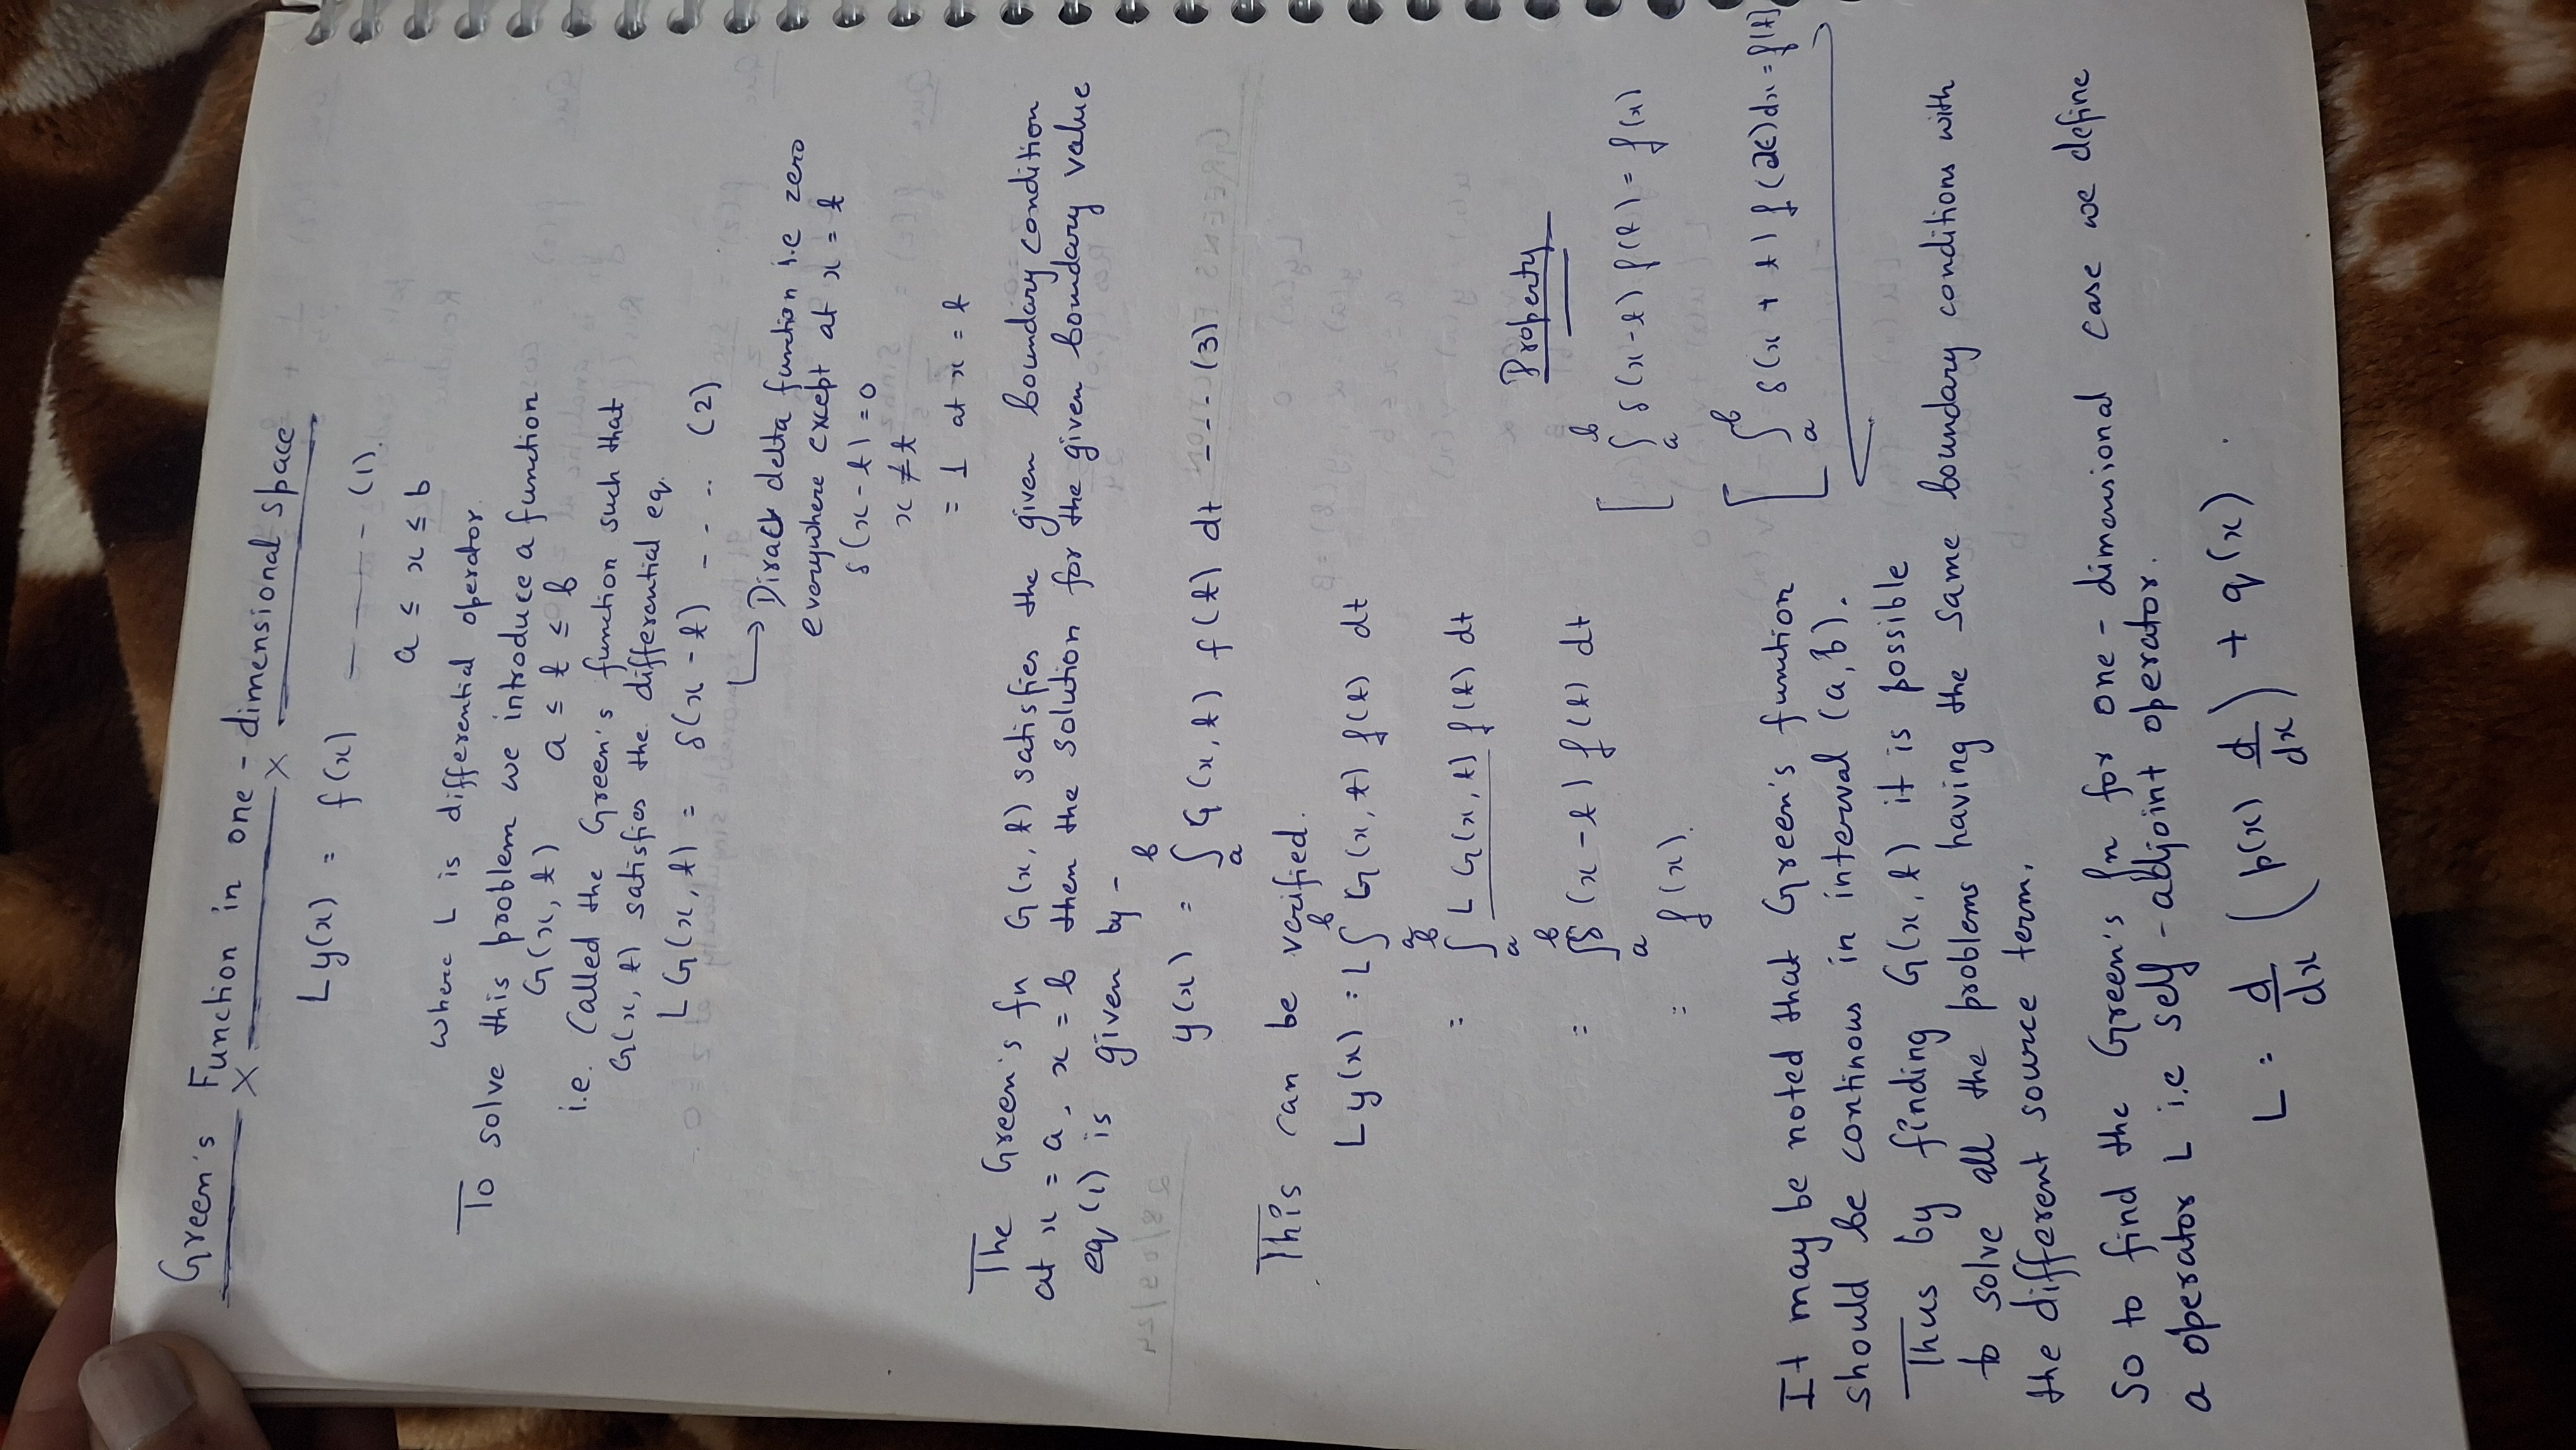 Green's Function in one-dimensional space
L y(x) = f(x) - - - - (1).
a ≤ x ≤ b
where L is differential operator.
To solve this problem we introduce a function
G(x, t) a ≤ t ≤ b
i.e. Called the Green's function such that
G(x, t) satisfies the differential eq.
L G(x, t) = δ(x - t) - - -- (2)
↳ Diract delta function i.e zero
everywhere except at x = t
δ(x - t) = 0
x ≠ t
= 1 at x = t
The Green's fn G(x, t) satisfies the given boundary condition
at x = a, x = b then the solution for the given boundary value
eq (1) is given by -
y(x) = ∫ₐᵇ G(x, t) f(t) dt - - - (3)
This can be verified.
L y(x) : L ∫ₐᵇ G(x, t) f(t) dt
= ∫ₐᵇ L G(x, t) f(t) dt
Property
= ∫ₐᵇ δ(x - t) f(t) dt
[ ∫ₐᵇ δ(x - t) f(t) = f(x)
= f(x).
[ ∫ₐᵇ δ(x + t) f(x) dx = f(t) ]
It may be noted that Green's function
should be continous in interval (a, b).
Thus by finding G(x, t) it is possible
to solve all the problems having the same boundary conditions with
the different source term.
So to find the Green's fn for one-dimensional case we define
a operator L i.e self-adjoint operator.
L : d/dx (p(x) d/dx) + q(x).